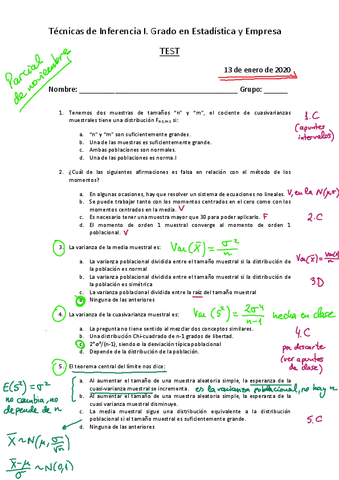 Técnicas de Inferencia I. Grado en Estadística y Empresa
TEST
Parcial
de noviembre
13 de enero de 2020
Nombre: Grupo:
1. Tenemos dos muestras de tamaños "n" y "m", el cociente de cuasivarianzas
muestrales tiene una distribución Fn-1,m-1 si:
a. "n" y "m" son suficientemente grandes.
b. Una de las muestras es suficientemente grande.
c. Ambas poblaciones son normales.
d. Una de las poblaciones es normal
1.C
(apuntes
intervalos)
2. ¿Cuál de las siguientes afirmaciones es falsa en relación con el método de los
momentos?
a. En algunas ocasiones, hay que resolver un sistema de ecuaciones no lineales. V, en la N(μ,σ)
b. Se puede trabajar tanto con los momentos centrados en el cero como con los
momentos centrados en la media. V
c. Es necesario tener una muestra mayor que 30 para poder aplicarlo. F
d. El momento de orden 1 muestral converge al momento de orden 1
poblacional. V
2.C
3. La varianza de la media muestral es: Var(X̄) = σ²/n
a. La varianza poblacional dividida entre el tamaño muestral si la distribución de
la población es normal
b. La varianza poblacional dividida entre el tamaño muestral si la distribución de
la población es simétrica
c. La varianza poblacional dividida entre la raíz del tamaño muestral
d. Ninguna de las anteriores
3.D
4. La varianza de la cuasivarianza muestral es: Var(S²) = 2σ⁴/n-1 hecha en clase
a. La pregunta no tiene sentido al mezclar dos conceptos similares.
b. Una distribución Chi-cuadrado de n-1 grados de libertad.
c. 2*σ⁴/(n-1), siendo σ la desviación típica poblacional
d. Depende de la distribución de la población.
4.C
por descarte
(ver apuntes
de clase)
5. El teorema central del límite nos dice:
a. Al aumentar el tamaño de una muestra aleatoria simple, la esperanza de la
cuasivarianza muestral se incrementa. es la varianza poblacional, no hay n
b. Al aumentar el tamaño de una muestra aleatoria simple, la esperanza de la
cuasivarianza muestral disminuye.
c. La media muestral sigue una distribución equivalente a la distribución
poblacional si el tamaño muestral es suficientemente grande.
d. Ninguna de las anteriores
5.C
E(S²)=σ²
no cambia, no
depende de n
X̄ ~ N(μ, σ/√n)